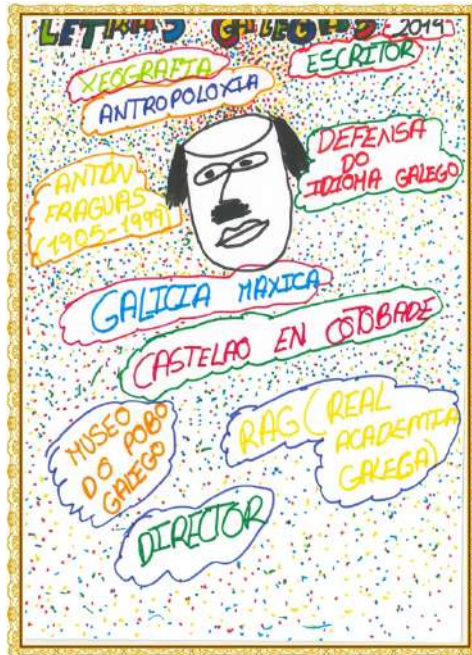 LETRAS GALEGAS 2019
XEOGRAFIA
ESCRITOR
ANTROPOLOXIA
DEFENSA
DO
IDIOMA GALEGO
ANTÓN
FRAGUAS
(1905-1999)
GALICIA MAXICA
CASTELAO EN COTOBADE
MUSEO
DO POBO
GALEGO
RAG (REAL
ACADEMIA
GALEGA)
DIRECTOR